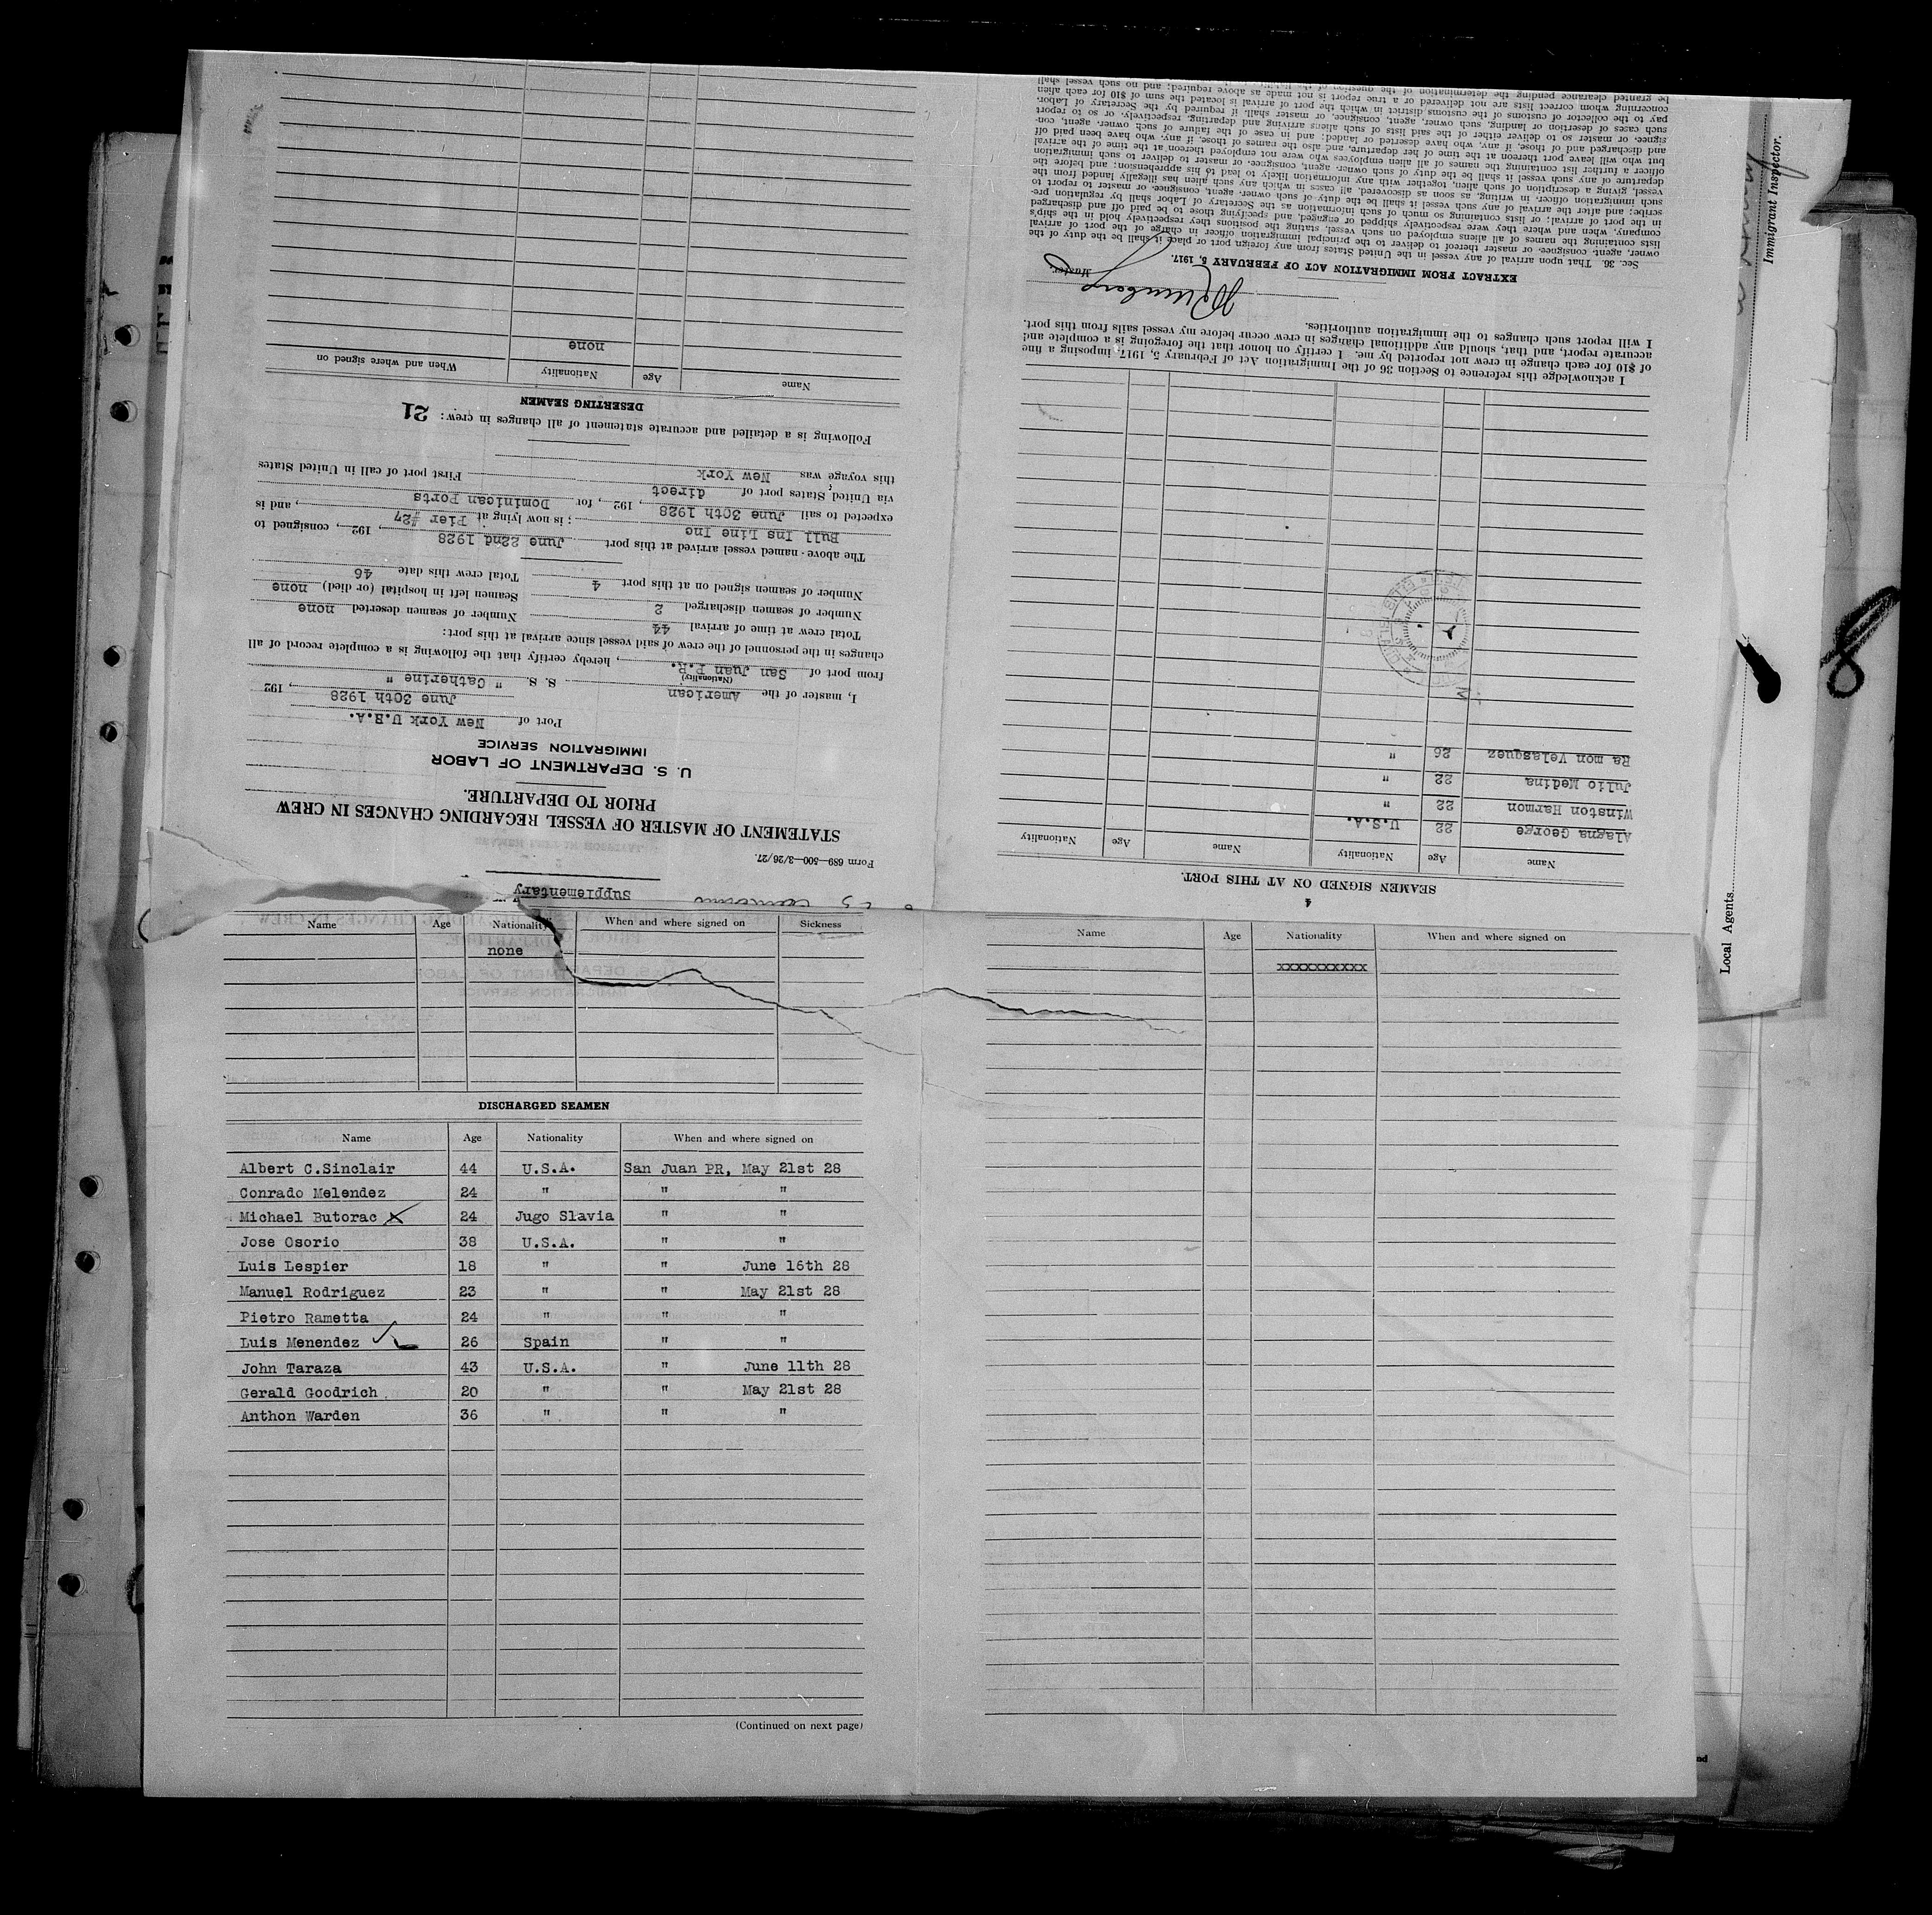 Supplementary
Form 689—500—3/26/27.
STATEMENT OF MASTER OF VESSEL REGARDING CHANGES IN CREW
PRIOR TO DEPARTURE.
U. S. DEPARTMENT OF LABOR
IMMIGRATION SERVICE
Port of New York U.S.A.
June 30th 1928, 192
I, master of the American S. S. " Catherine "
(Nationality)
from port of San Juan P.R., hereby certify that the following is a complete record of all
changes in the personnel of the crew of said vessel since arrival at this port:
Total crew at time of arrival 44 Number of seamen deserted none
Number of seamen discharged 2 Seamen left in hospital (or died) none
Number of seamen signed on at this port 4 Total crew this date 46
The above-named vessel arrived at this port June 22nd 1928, 192, consigned to
Bull Ins Line Inc; is now lying at Pier #27, and is
expected to sail June 30th 1928, 192, for Dominican Ports
via United States port of direct
this voyage was New York First port of call in United States
Following is a detailed and accurate statement of all changes in crew: 21
DESERTING SEAMEN
Name Age Nationality When and where signed on
none
4
SEAMEN SIGNED ON AT THIS PORT.
Name Age Nationality Name Age Nationality
Alagna George 22 U.S.A.
Winston Harmon 22 "
Julio Medina 22 "
Ra mon Velasquez 26 "
I acknowledge this reference to Section 36 of the Immigration Act of February 5, 1917, imposing a fine
of $10 for each change in crew not reported by me. I certify on honor that the foregoing is a complete and
accurate report, and that, should any additional changes in crew occur before my vessel sails from this port,
I will report such changes to the immigration authorities.
Master.
EXTRACT FROM IMMIGRATION ACT OF FEBRUARY 5, 1917.
Sec. 36. That upon arrival of any vessel in the United States from any foreign port or place it shall be the duty of the
owner, agent, consignee, or master thereof to deliver to the principal immigration officer in charge of the port of arrival
lists containing the names of all aliens employed on such vessel, stating the positions they respectively hold in the ship's
company, when and where they were respectively shipped or engaged, and specifying those to be paid off and discharged
in the port of arrival; or lists containing so much of such information as the Secretary of Labor shall by regulation pre-
scribe; and after the arrival of any such vessel it shall be the duty of such owner, agent, consignee, or master to report to
such immigration officer, in writing, as soon as discovered, all cases in which any such alien has illegally landed from the
vessel, giving a description of such alien, together with any information likely to lead to his apprehension; and before the
departure of any such vessel it shall be the duty of such owner, agent, consignee, or master to deliver to such immigration
officer a further list containing the names of all alien employees who were not employed thereon at the time of the arrival
but who will leave port thereon at the time of her departure, and also the names of those, if any, who have been paid off
and discharged and of those, if any, who have deserted or landed; and in case of the failure of such owner, agent, con-
signee, or master so to deliver either of the said lists of such aliens arriving and departing, respectively, or so to report
such cases of desertion or landing, such owner, agent, consignee, or master shall, if required by the Secretary of Labor,
pay to the collector of customs of the customs district in which the port of arrival is located the sum of $10 for each alien
concerning whom correct lists are not delivered or a true report is not made as above required; and no such vessel shall
be granted clearance pending the determination of the question of the
Name Age Nationality When and where signed on Sickness
none
DISCHARGED SEAMEN
Name Age Nationality When and where signed on
Albert C.Sinclair 44 U.S.A. San Juan PR, May 21st 28
Conrado Melendez 24 " " "
Michael Butorac 24 Jugo Slavia " "
Jose Osorio 38 U.S.A. " "
Luis Lespier 18 " " June 16th 28
Manuel Rodriguez 23 " " May 21st 28
Pietro Rametta 24 " " "
Luis Menendez 26 Spain " "
John Taraza 43 U.S.A. " June 11th 28
Gerald Goodrich 20 " " May 21st 28
Anthon Warden 36 " " "
(Continued on next page)
Name Age Nationality When and where signed on
xxxxxxxxxx
Immigrant Inspector.
Local Agents
8